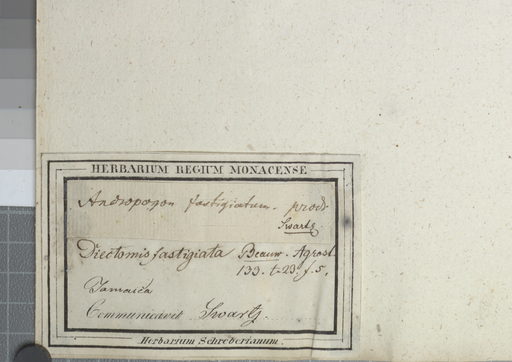 HERBARIUM REGIUM MONACENSE
Andropogon fastigiatum. prodr
Swartz
Diectomis fastigiata Beauv. Agrost.
133. t. 23. f. 5.
Jamaica
Communicavit Swartz.
Herbarium Schreberianum.